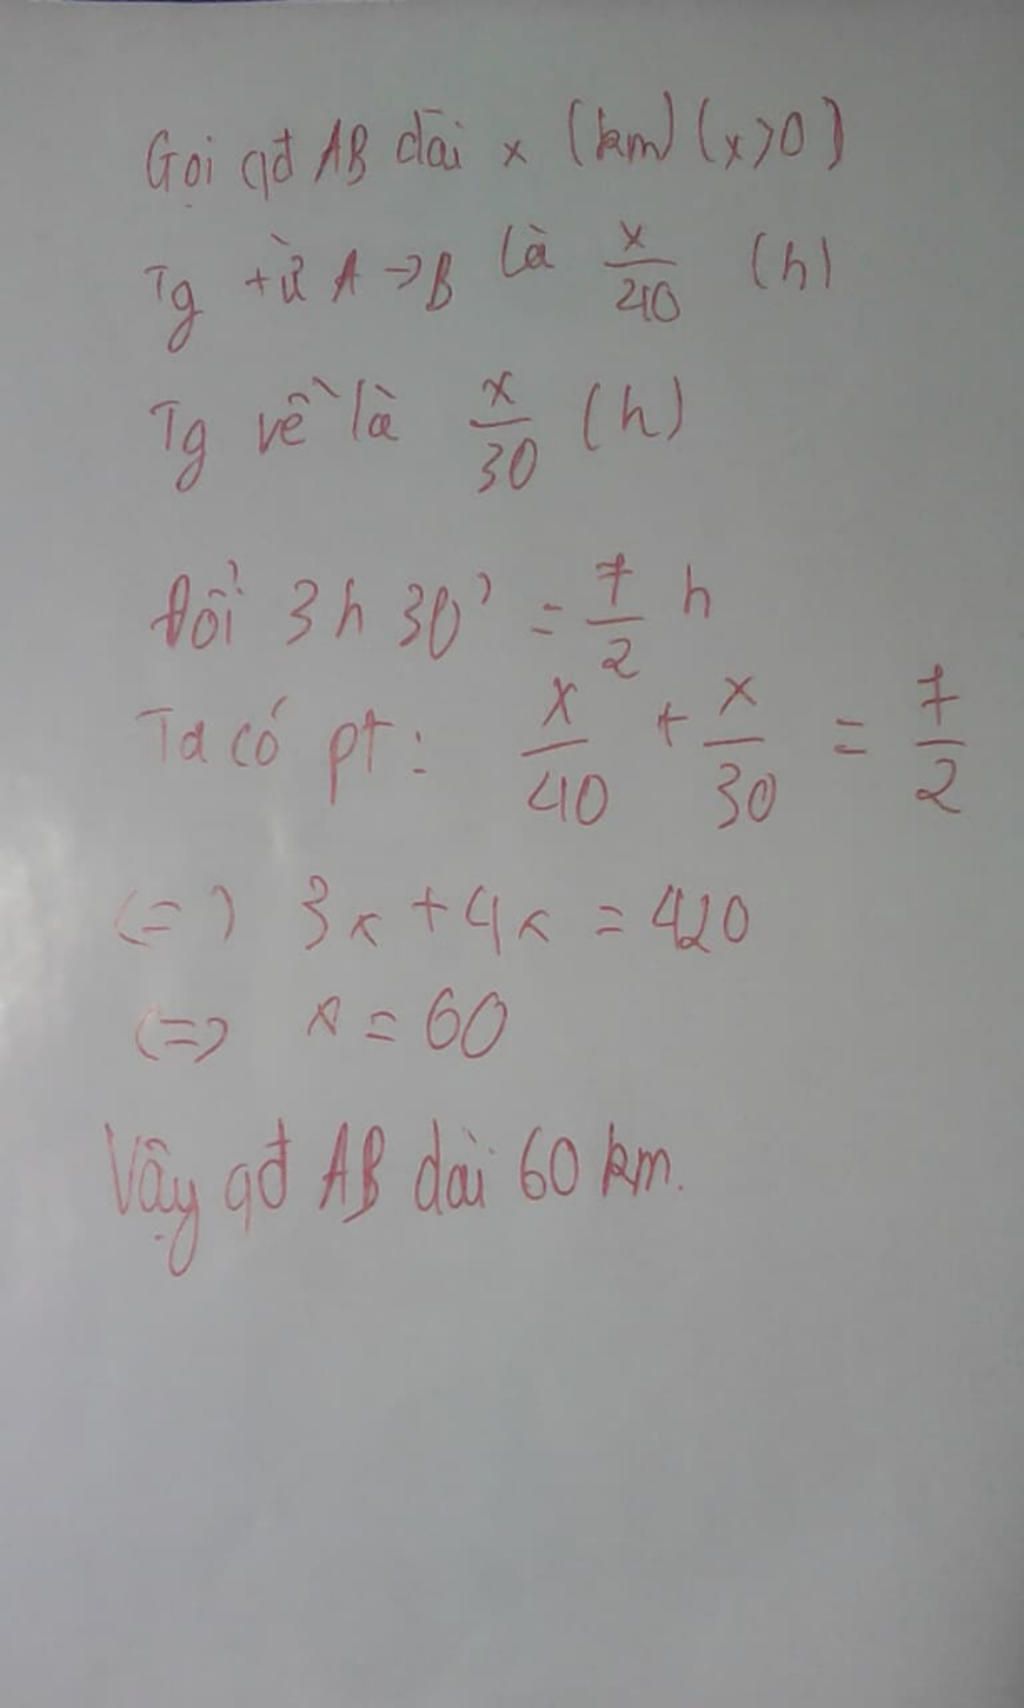 Gọi qđ AB dài x (km) (x>0)
Tg từ A->B là x/40 (h)
Tg về là x/30 (h)
Đổi 3h 30' = 7/2 h
Ta có pt: x/40 + x/30 = 7/2
(=) 3x + 4x = 420
(=> x = 60
Vậy qđ AB dài 60 km.